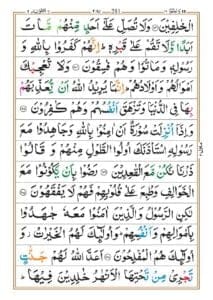 الْخٰلِفِيْنَ وَلَا تُصَلِّ عَلٰٓى اَحَدٍ مِّنْهُمْ مَّاتَ
اَبَدًا وَّلَا تَقُمْ عَلٰى قَبْرِهٖ ؕ اِنَّهُمْ كَفَرُوْا بِاللّٰهِ وَ
رَسُوْلِهٖ وَمَاتُوْا وَهُمْ فٰسِقُوْنَ وَلَا تُعْجِبْكَ
اَمْوَالُهُمْ وَاَوْلَادُهُمْ ؕ اِنَّمَا يُرِيْدُ اللّٰهُ اَنْ يُّعَذِّبَهُمْ
بِهَا فِى الدُّنْيَا وَتَزْهَقَ اَنْفُسُهُمْ وَهُمْ كٰفِرُوْنَ
وَاِذَآ اُنْزِلَتْ سُوْرَةٌ اَنْ اٰمِنُوْا بِاللّٰهِ وَجَاهِدُوْا مَعَ
رَسُوْلِهِ اسْتَاْذَنَكَ اُولُوا الطَّوْلِ مِنْهُمْ وَقَالُوْا
ذَرْنَا نَكُنْ مَّعَ الْقٰعِدِيْنَ رَضُوْا بِاَنْ يَّكُوْنُوْا مَعَ
الْخَوَالِفِ وَطُبِعَ عَلٰى قُلُوْبِهِمْ فَهُمْ لَا يَفْقَهُوْنَ
لٰكِنِ الرَّسُوْلُ وَالَّذِيْنَ اٰمَنُوْا مَعَهٗ جٰهَدُوْا
بِاَمْوَالِهِمْ وَاَنْفُسِهِمْ ؕ وَاُولٰٓئِكَ لَهُمُ الْخَيْرٰتُ
وَاُولٰٓئِكَ هُمُ الْمُفْلِحُوْنَ اَعَدَّ اللّٰهُ لَهُمْ جَنّٰتٍ
تَجْرِىْ مِنْ تَحْتِهَا الْاَنْهٰرُ خٰلِدِيْنَ فِيْهَا ؕ